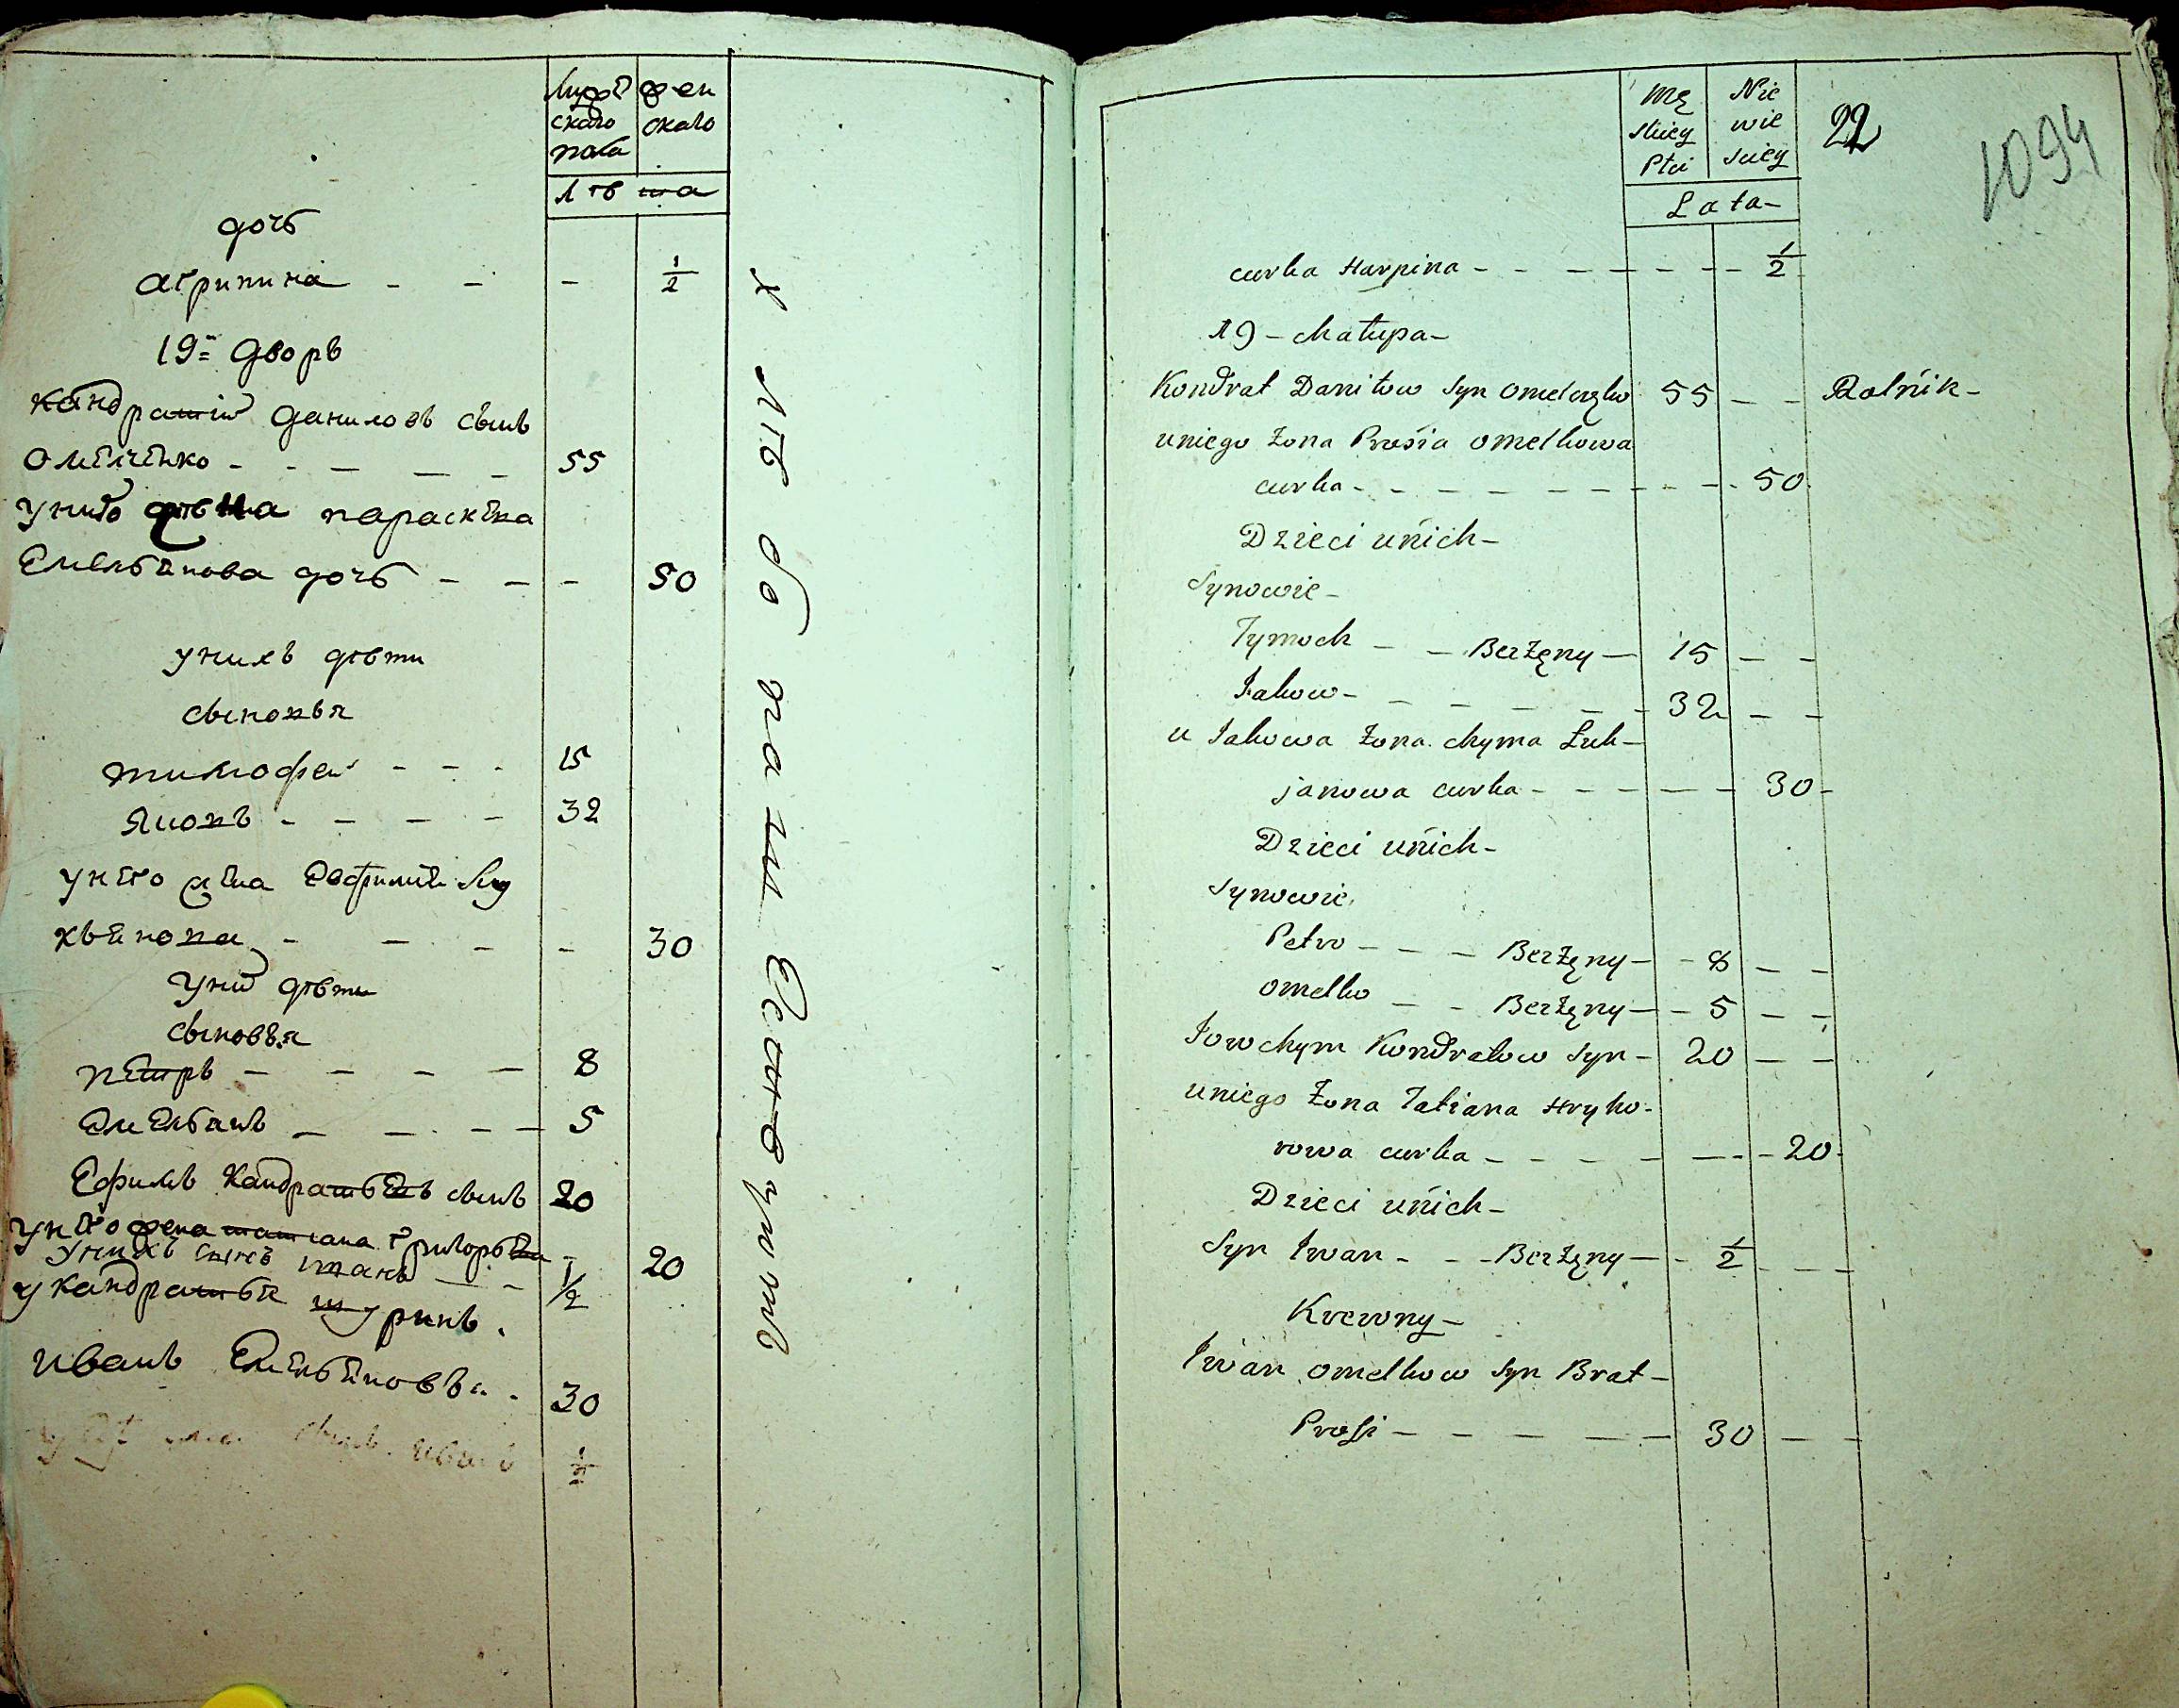 Мужескаго пола
Женскаго
Лѣта
дочь
агрипина - - - 1/2
19й дворъ
Кандратій даниловъ сынъ
Омельченко - - - - - 55
у него жена параскева
Емельянова дочь - - - 50
у нихъ дѣти
сыновья
тимофей - - - 15
Яковъ - - - - 32
у него жена Евфимія Лу
кьянова - - - - 30
у них дѣти
сыновья
петръ - - - - 8
Емельянъ - - - - 5
Ефимъ Кандратьевъ сынъ 20
у него жена татиана Григорьева - 20
у нихъ сынъ иванъ - - 1/2
у кандратья шуринъ.
иванъ Емельяновъ 30
сынъ иванъ 1/2
Męskiey Płci
Niewieściey
22
1094
Lata -
curka Harpina - - - - - - - 1/2
19 - Chałupa -
Kondrat Daniłow Syn Omelczęko 55 - - Rolnik -
u niego Żona Prośia Omelkowa
curka - - - - - - - - - 50
Dzieci u nich -
Synowie -
Tymoch - - Berżęny - 15 - -
Jakow - - - - - - 32 - -
u Jakowa Żona Chyma Łuk-
janowa curka - - - - - 30 -
Dzieci u nich -
Synowie
Petro - - - Berżęny - - 8 - -
Omelko - - Berżęny - - 5 - -
Jowchym Kondratow Syn - 20 - -
u niego Żona Tatiana Hryho-
rowa curka - - - - - - - 20
Dzieci u nich -
Syn Iwan - - - Berżęny - - 1/2 - - -
Krewny -
Iwan Omelkow Syn Brat -
Prosi - - - - - - 30 - -